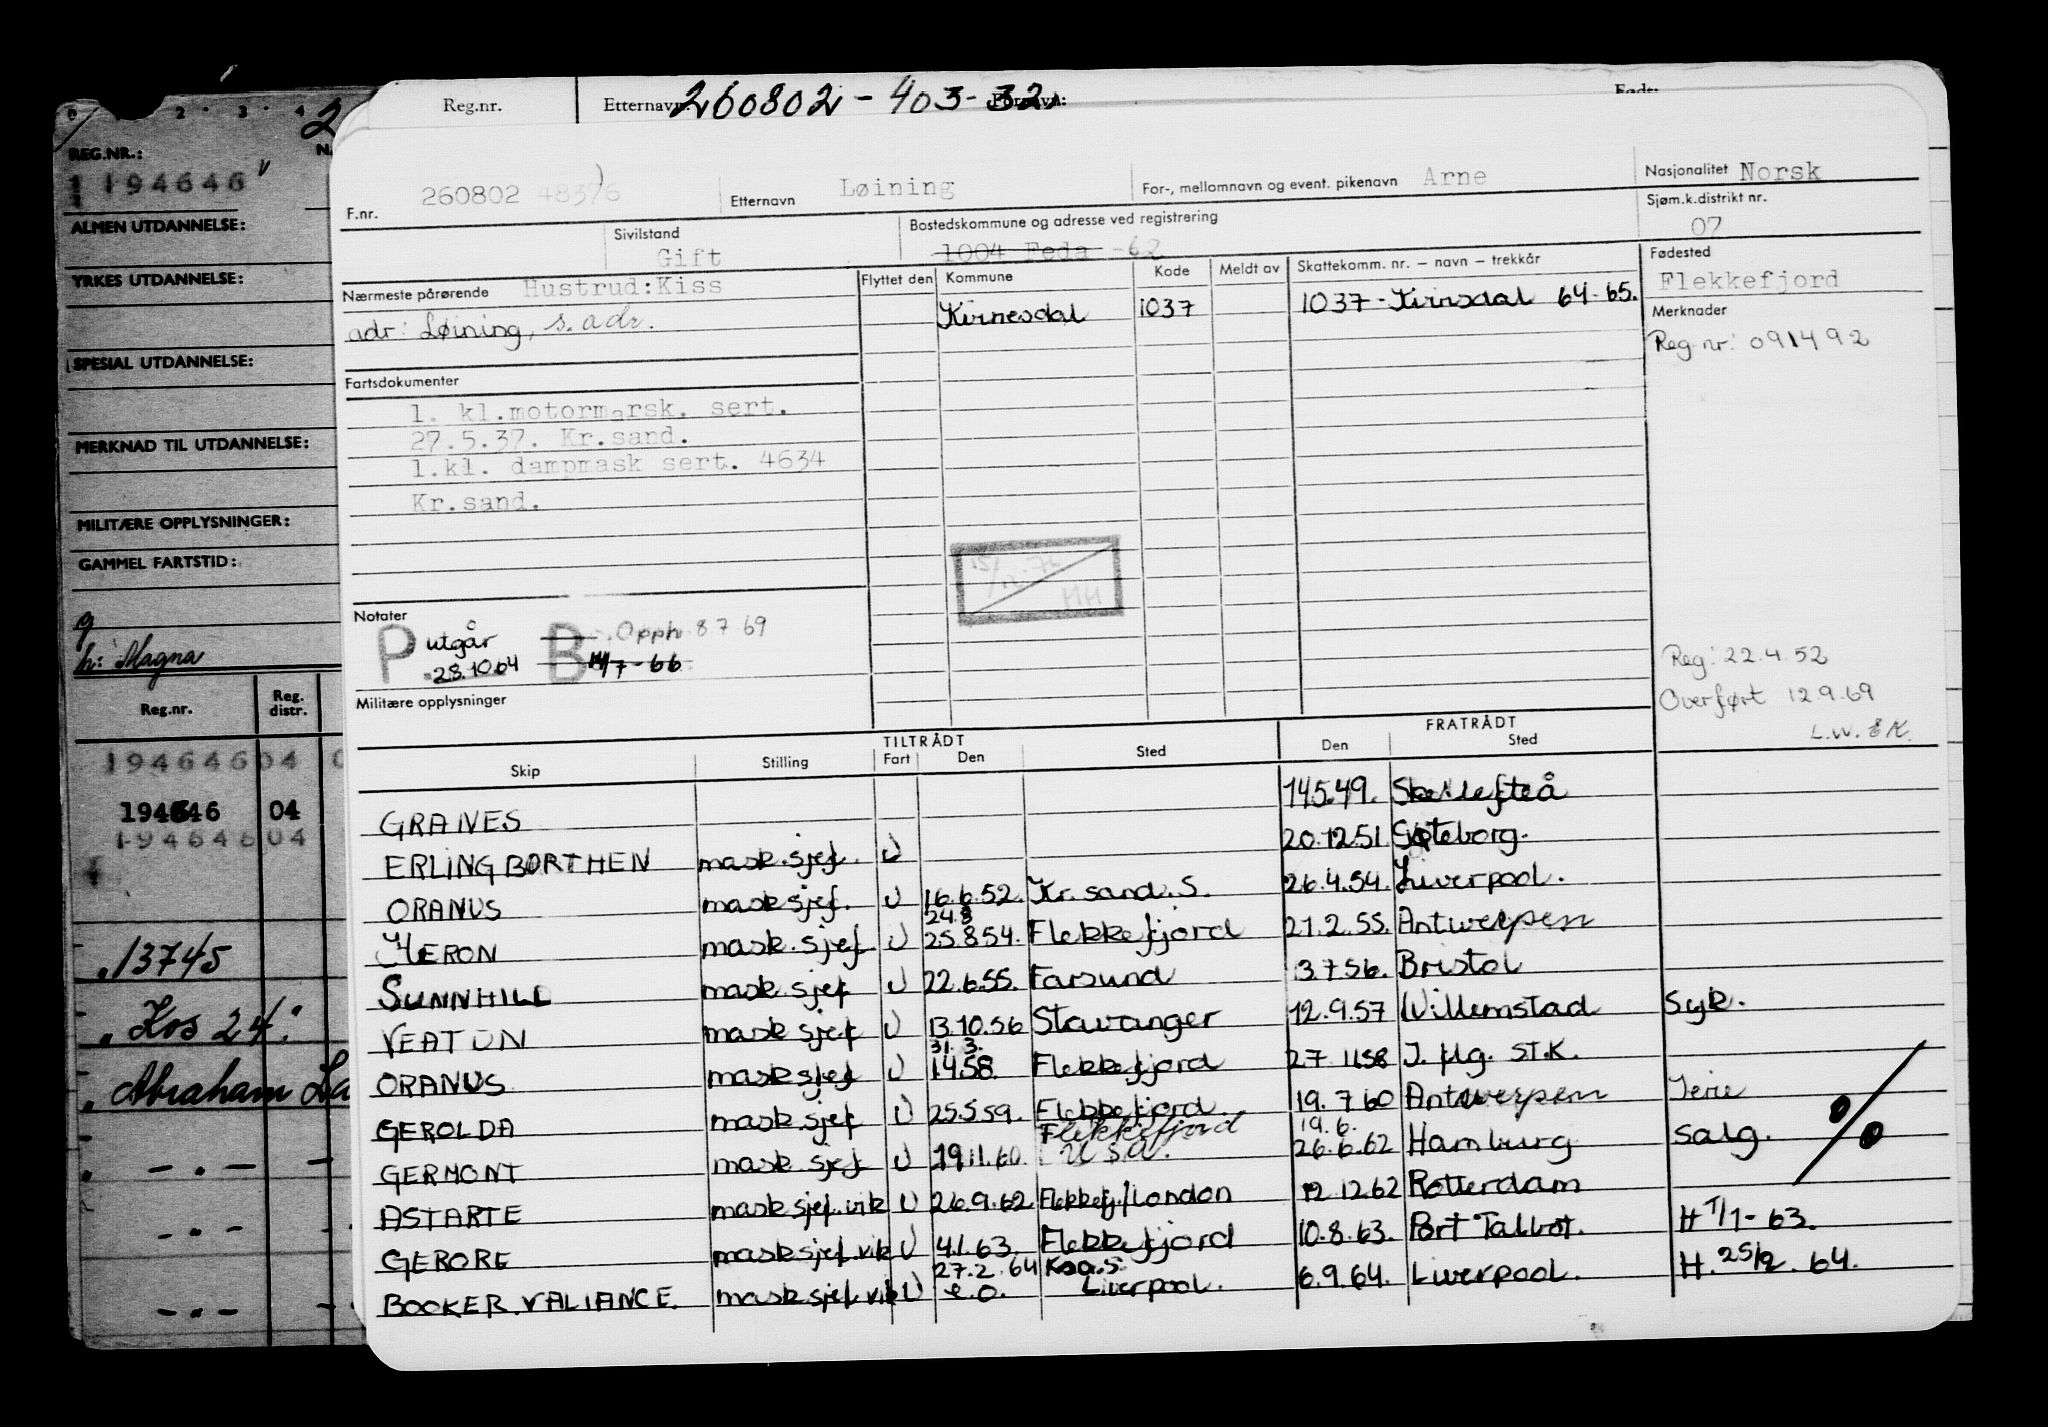 REG.NR.:
194646
ALMEN UTDANNELSE:
YRKES UTDANNELSE:
SPESIAL UTDANNELSE:
MERKNAD TIL UTDANNELSE:
MILITÆRE OPPLYSNINGER:
GAMMEL FARTSTID:
h: Magna
Reg.nr. Reg. distr.
194646 04
194646 04
194646 04
13745
" Kos 24."
" Abraham La
Reg.nr. Etternavn: 260802 - 403-32. Fornavn: Født:
F.nr. 260802 48376 Etternavn Løining For-, mellomnavn og event. pikenavn Arne Nasjonalitet Norsk
Sivilstand Gift Bostedskommune og adresse ved registrering 1004 Feda -62 Sjøm.k.distrikt nr. 07
Nærmeste pårørende Hustrud:Kiss Flyttet den Kommune Kode Meldt av Skattekomm. nr. – navn – trekkår Fødested Flekkefjord
adr: Løining, s. adr. Kvinesdal 1037 1037 - Kvinsdal 64-65. Merknader
Reg nr: 091492
Fartsdokumenter
1. kl.motormarsk. sert.
27.5.37. Kr.sand.
1.kl. dampmask sert. 4634
Kr.sand.
HH
Notater
P utgår 28.10.64 B Opph 8 7 69
14/7-66
Reg: 22.4.52
Overført 12.9.69
L.W. EK.
Militære opplysninger
TILTRÅDT FRATRÅDT
Skip Stilling Fart Den Sted Den Sted
GRANES 14.5.49. Skellefteå
ERLING BORTHEN mask.sjef. U 20.12.51. Gøteborg.
ORANUS mask sjef. U 16.6.52. Kr. sand. S. 26.4.54. Liverpool.
24.8
HERON mask. sjef U 25.8.54. Flekkefjord 21.2.55. Antwerpen
SUNNHILL mask sjef U 22.6.55. Farsund 3.7.56. Bristol
VEATON mask sjef U 13.10.56 Stavanger 12.9.57 Willemstad Syk.
31.3.
ORANUS mask sjef U 1.4.58. Flekkefjord 27.11.58 I. flg. ST.K.
GEROLDA mask sjef U 25.5.59. Flekkefjord. 19.7.60 Antwerpen Ferie
Flekkefjord 19.6.
GERMONT mask sjef U 19.11.60. U S A. 26.6.62 Hamburg salg. %
ASTARTE mask sjef. vik U 26.9.62 Flekkefj./London 12.12.62 Rotterdam
GERORE mask sjef. vik U 4.1.63. Flekkefjord 10.8.63. Port Talbot. H 7/1-63.
27.2.64 Kr.a.S
BOOKER VALIANCE. mask sjef. vik U e.o. Liverpool. 6.9.64. Liverpool. H. 25/2. 64.